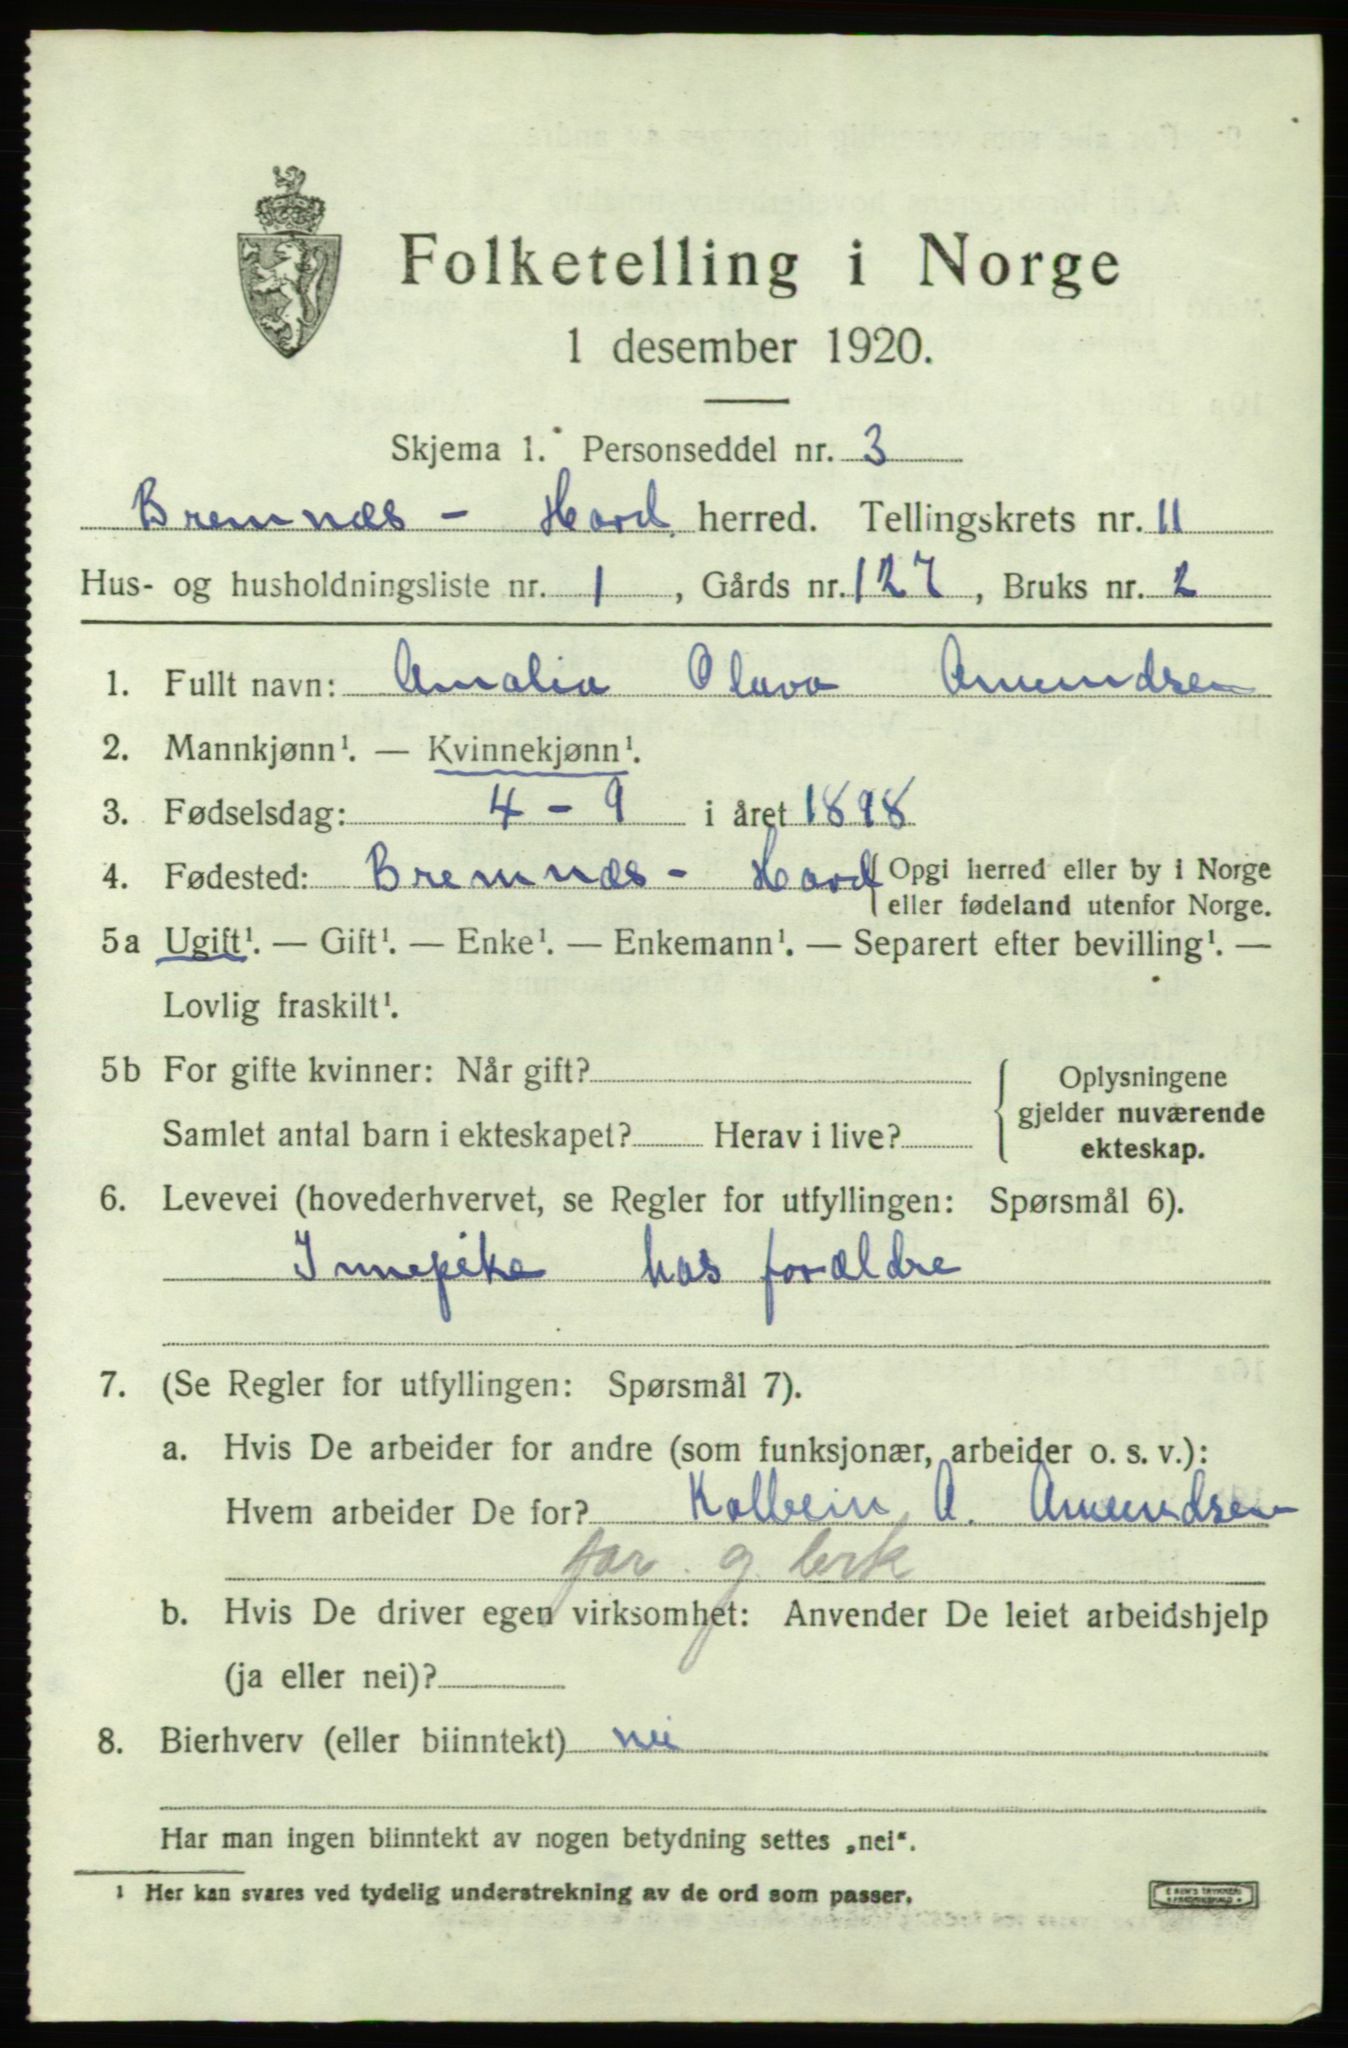 Folketelling i Norge
1 desember 1920.
Skjema 1. Personseddel nr. 3
Bremnæs - Hord. herred. Tellingskrets nr. 11
Hus- og husholdningsliste nr. 1, Gårds nr. 127, Bruks nr. 2
1. Fullt navn: Amalia Olava Amundsen
2. Mannkjønn¹. — Kvinnekjønn¹.
3. Fødselsdag: 4 - 9 i året 1898
4. Fødested: Bremnæs - Hord { Opgi herred eller by i Norge
eller fødeland utenfor Norge.
5a Ugift¹. — Gift¹. — Enke¹. — Enkemann¹. — Separert efter bevilling¹. —
Lovlig fraskilt¹.
5b For gifte kvinner: Når gift?
Samlet antal barn i ekteskapet? Herav i live?
{ Oplysningene
gjelder nuværende
ekteskap.
6. Levevei (hovederhvervet, se Regler for utfyllingen: Spørsmål 6).
Innepike hos forældre
7. (Se Regler for utfyllingen: Spørsmål 7).
a. Hvis De arbeider for andre (som funksjonær, arbeider o. s. v.):
Hvem arbeider De for? Kolbein A. Amundsen
far
b. Hvis De driver egen virksomhet: Anvender De leiet arbeidshjelp
(ja eller nei)?
8. Bierhverv (eller biinntekt) nei
Har man ingen biinntekt av nogen betydning settes „nei“.
¹ Her kan svares ved tydelig understrekning av de ord som passer.